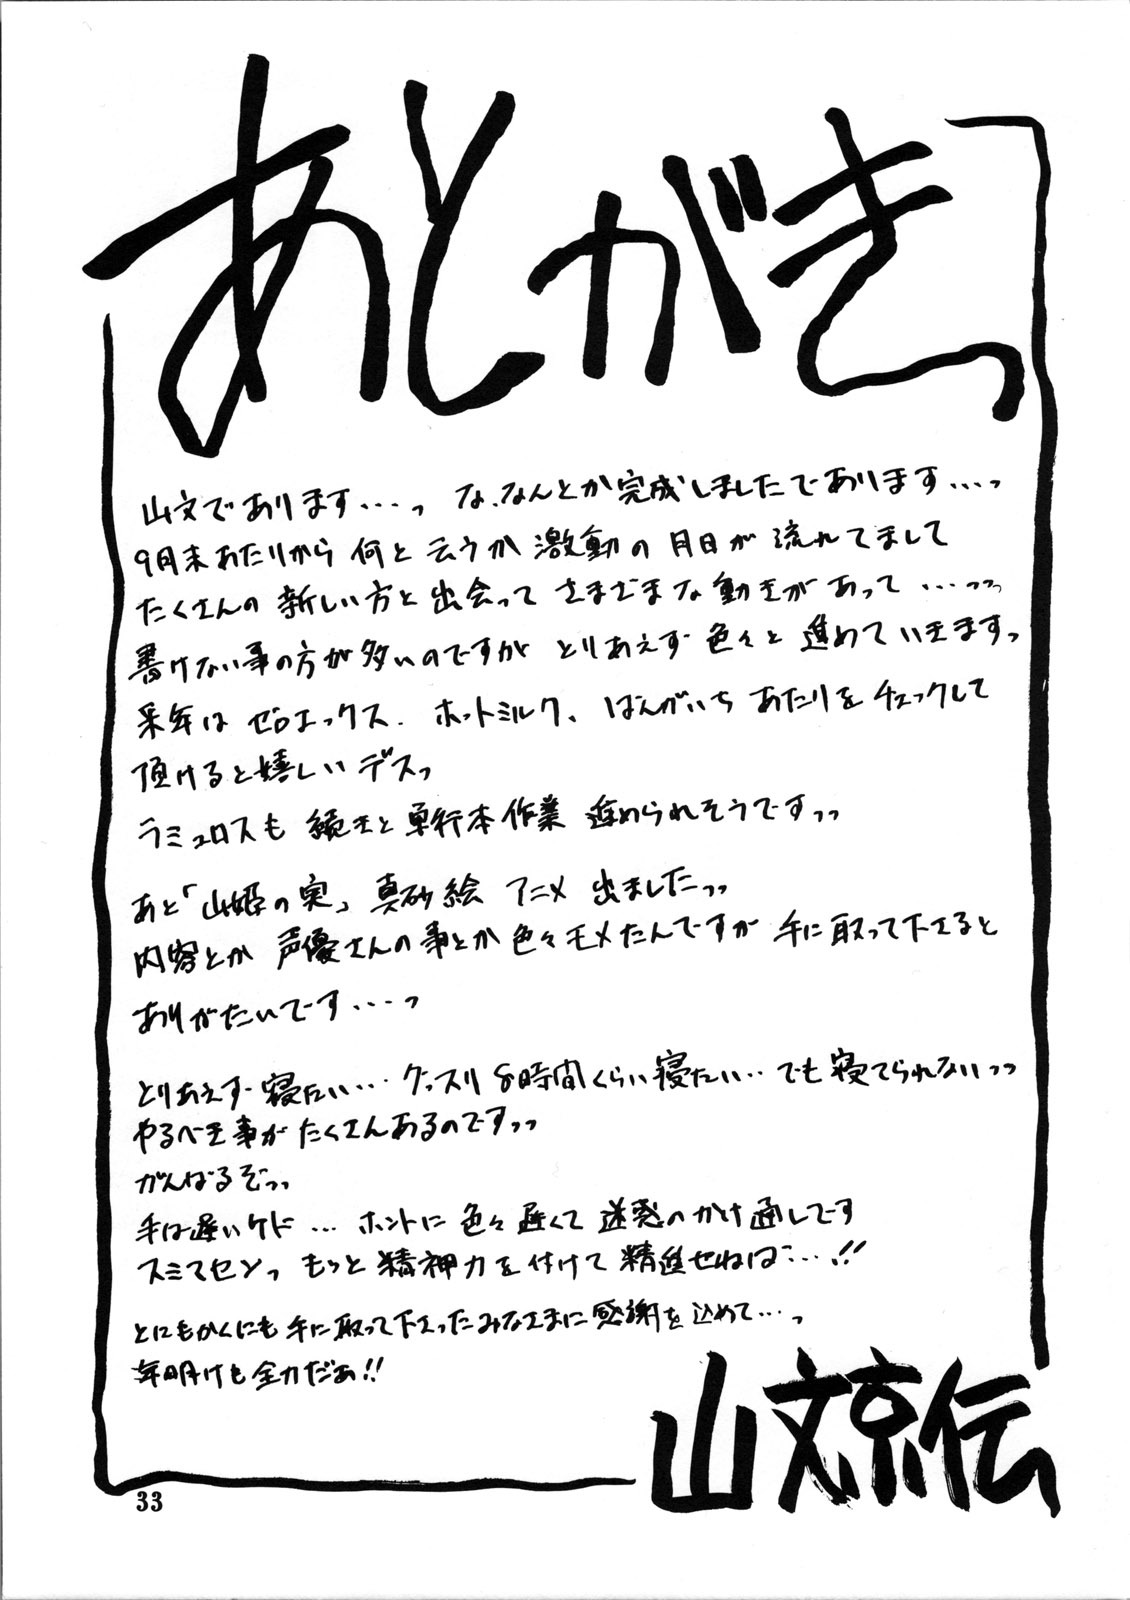 あとがきっ
山文であります・・・っ な、なんとか完成しましたであります・・・っ
9月末あたりから何と云うか激動の月日が流れてまして
たくさんの新しい方と出会ってさまざまな動きがあって・・・っっ
書けない事の方が多いのですが とりあえず色々と進めていきますっ
来年は ゼロエックス、ホットミルク、ばんがいちあたりをチェックして
頂けると嬉しいデスっ
ラミュロスも 続きと単行本作業 進められそうですっっ
あと「山姫の実」真砂絵 アニメ 出ましたっっ
内容とか 声優さんの事とか色々モメたんですが 手に取って下さると
ありがたいです・・・っ
とりあえず寝たい・・・グッスリ8時間くらい寝たい・・でも寝てられないっっ
やるべき事がたくさんあるのですっっ
がんばるぞっっ
手は遅いケド・・・ホントに色々遅くて迷惑のかけ通しです
スミマセンっ もっと精神力を付けて精進せねば・・・!!
とにもかくにも手に取って下さったみなさまに感謝を込めて・・・っ
年明けも全力だぁ!!
山文京伝
33